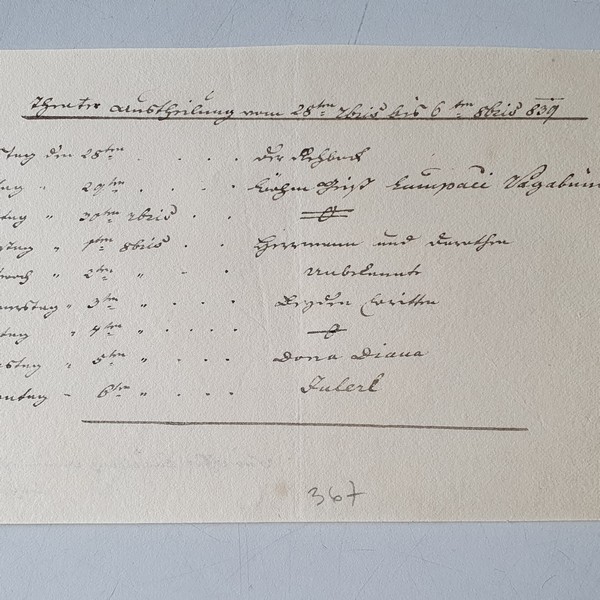 Theater Austheilung vom 28ten 7bris bis 6ten 8bris 839
stag den 28ten . . . . der Rehbock
tag " 29ten . . . Lumpaci Vagabun
tag " 30ten 7bris . .
stag " 1ten 8bris . . Herrmann und Dorothea
woch " 2te " . . Unbekannte
nerstag " 3te " . . .
tag " 4ten " . . . .
stag " 5ten " . . . . Dona Diana
ntag " 6ten " . . . Julerl
367